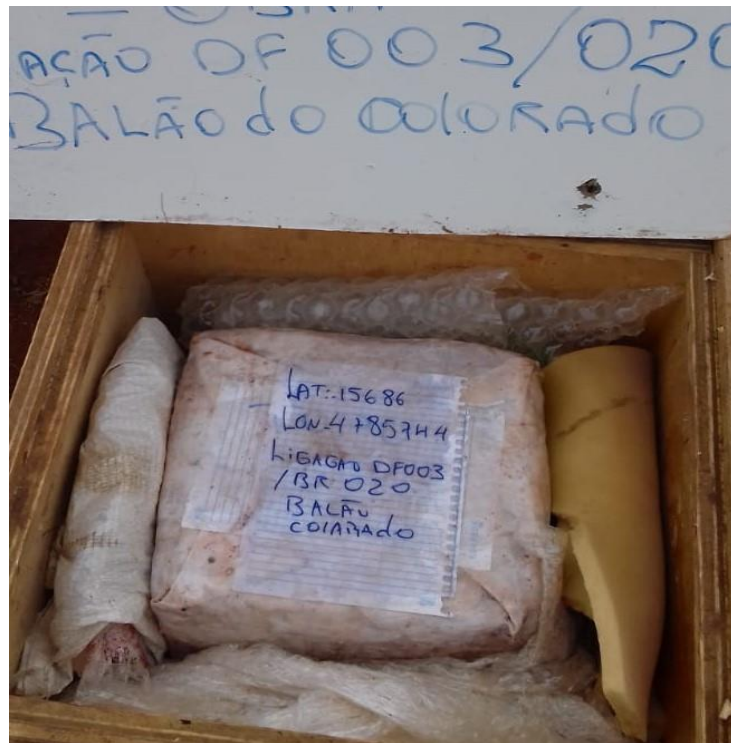 AÇÃO DF 003/020
BALÃO do COlORAdO
LAT:.15686
LON-4785744
LiGAGAO DF003
/BR 020
BALÃO
COlARADO